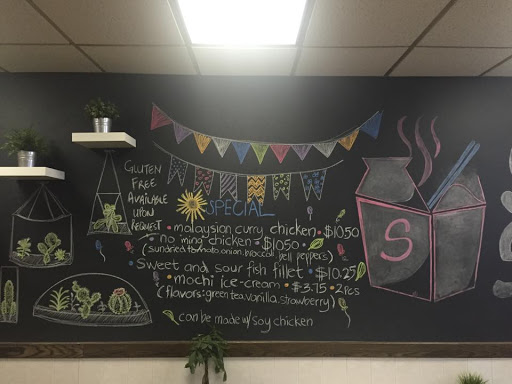 GLUTEN
FREE
AVAILABLE
UPON
REQUEST
SPECIAL
• malaysian curry chicken • $10.50
• no ming chicken • $10.50 •
(sundried tomato.onion.broccoli.bell peppers)
• sweet and sour fish fillet • $10.25
• mochi ice-cream • $3.75 • 2pcs
(flavors: green tea.vanilla.strawberry)
can be made w/ soy chicken
S